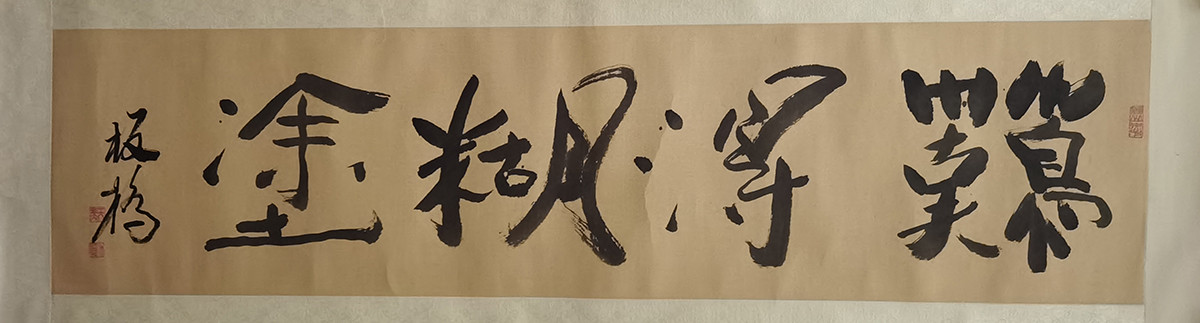 難得糊塗
板橋